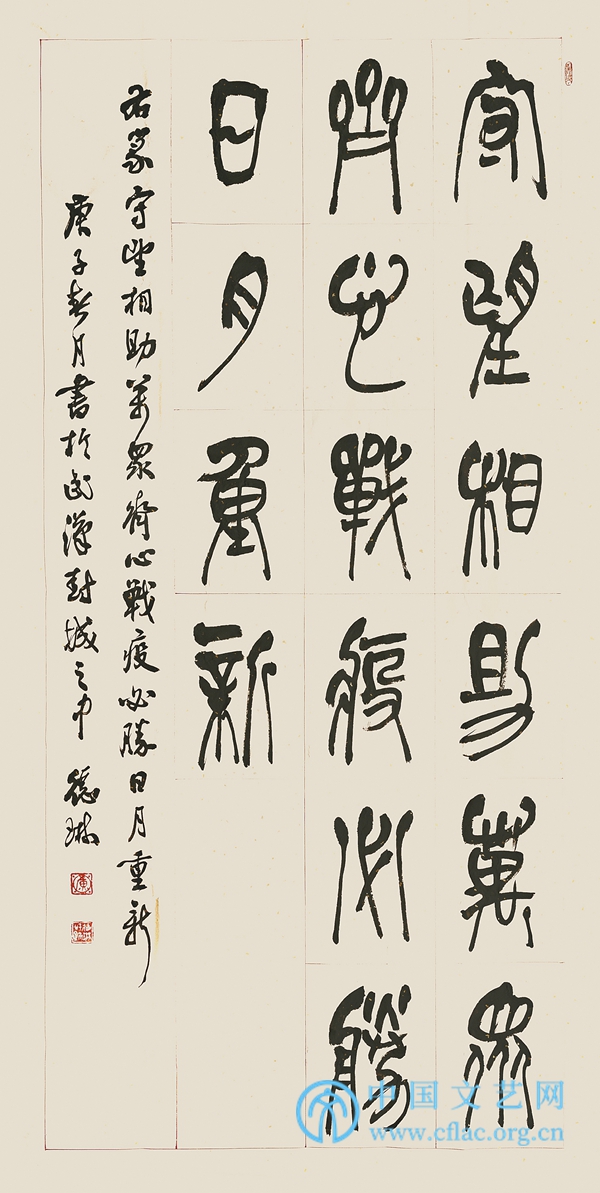 守望相助萬衆
齊心戰疫必勝
日月重新
右篆守望相助萬眾齊心戰疫必勝日月重新
庚子春月書於武漢封城之中 德琳
中国文艺网
www.cflac.org.cn